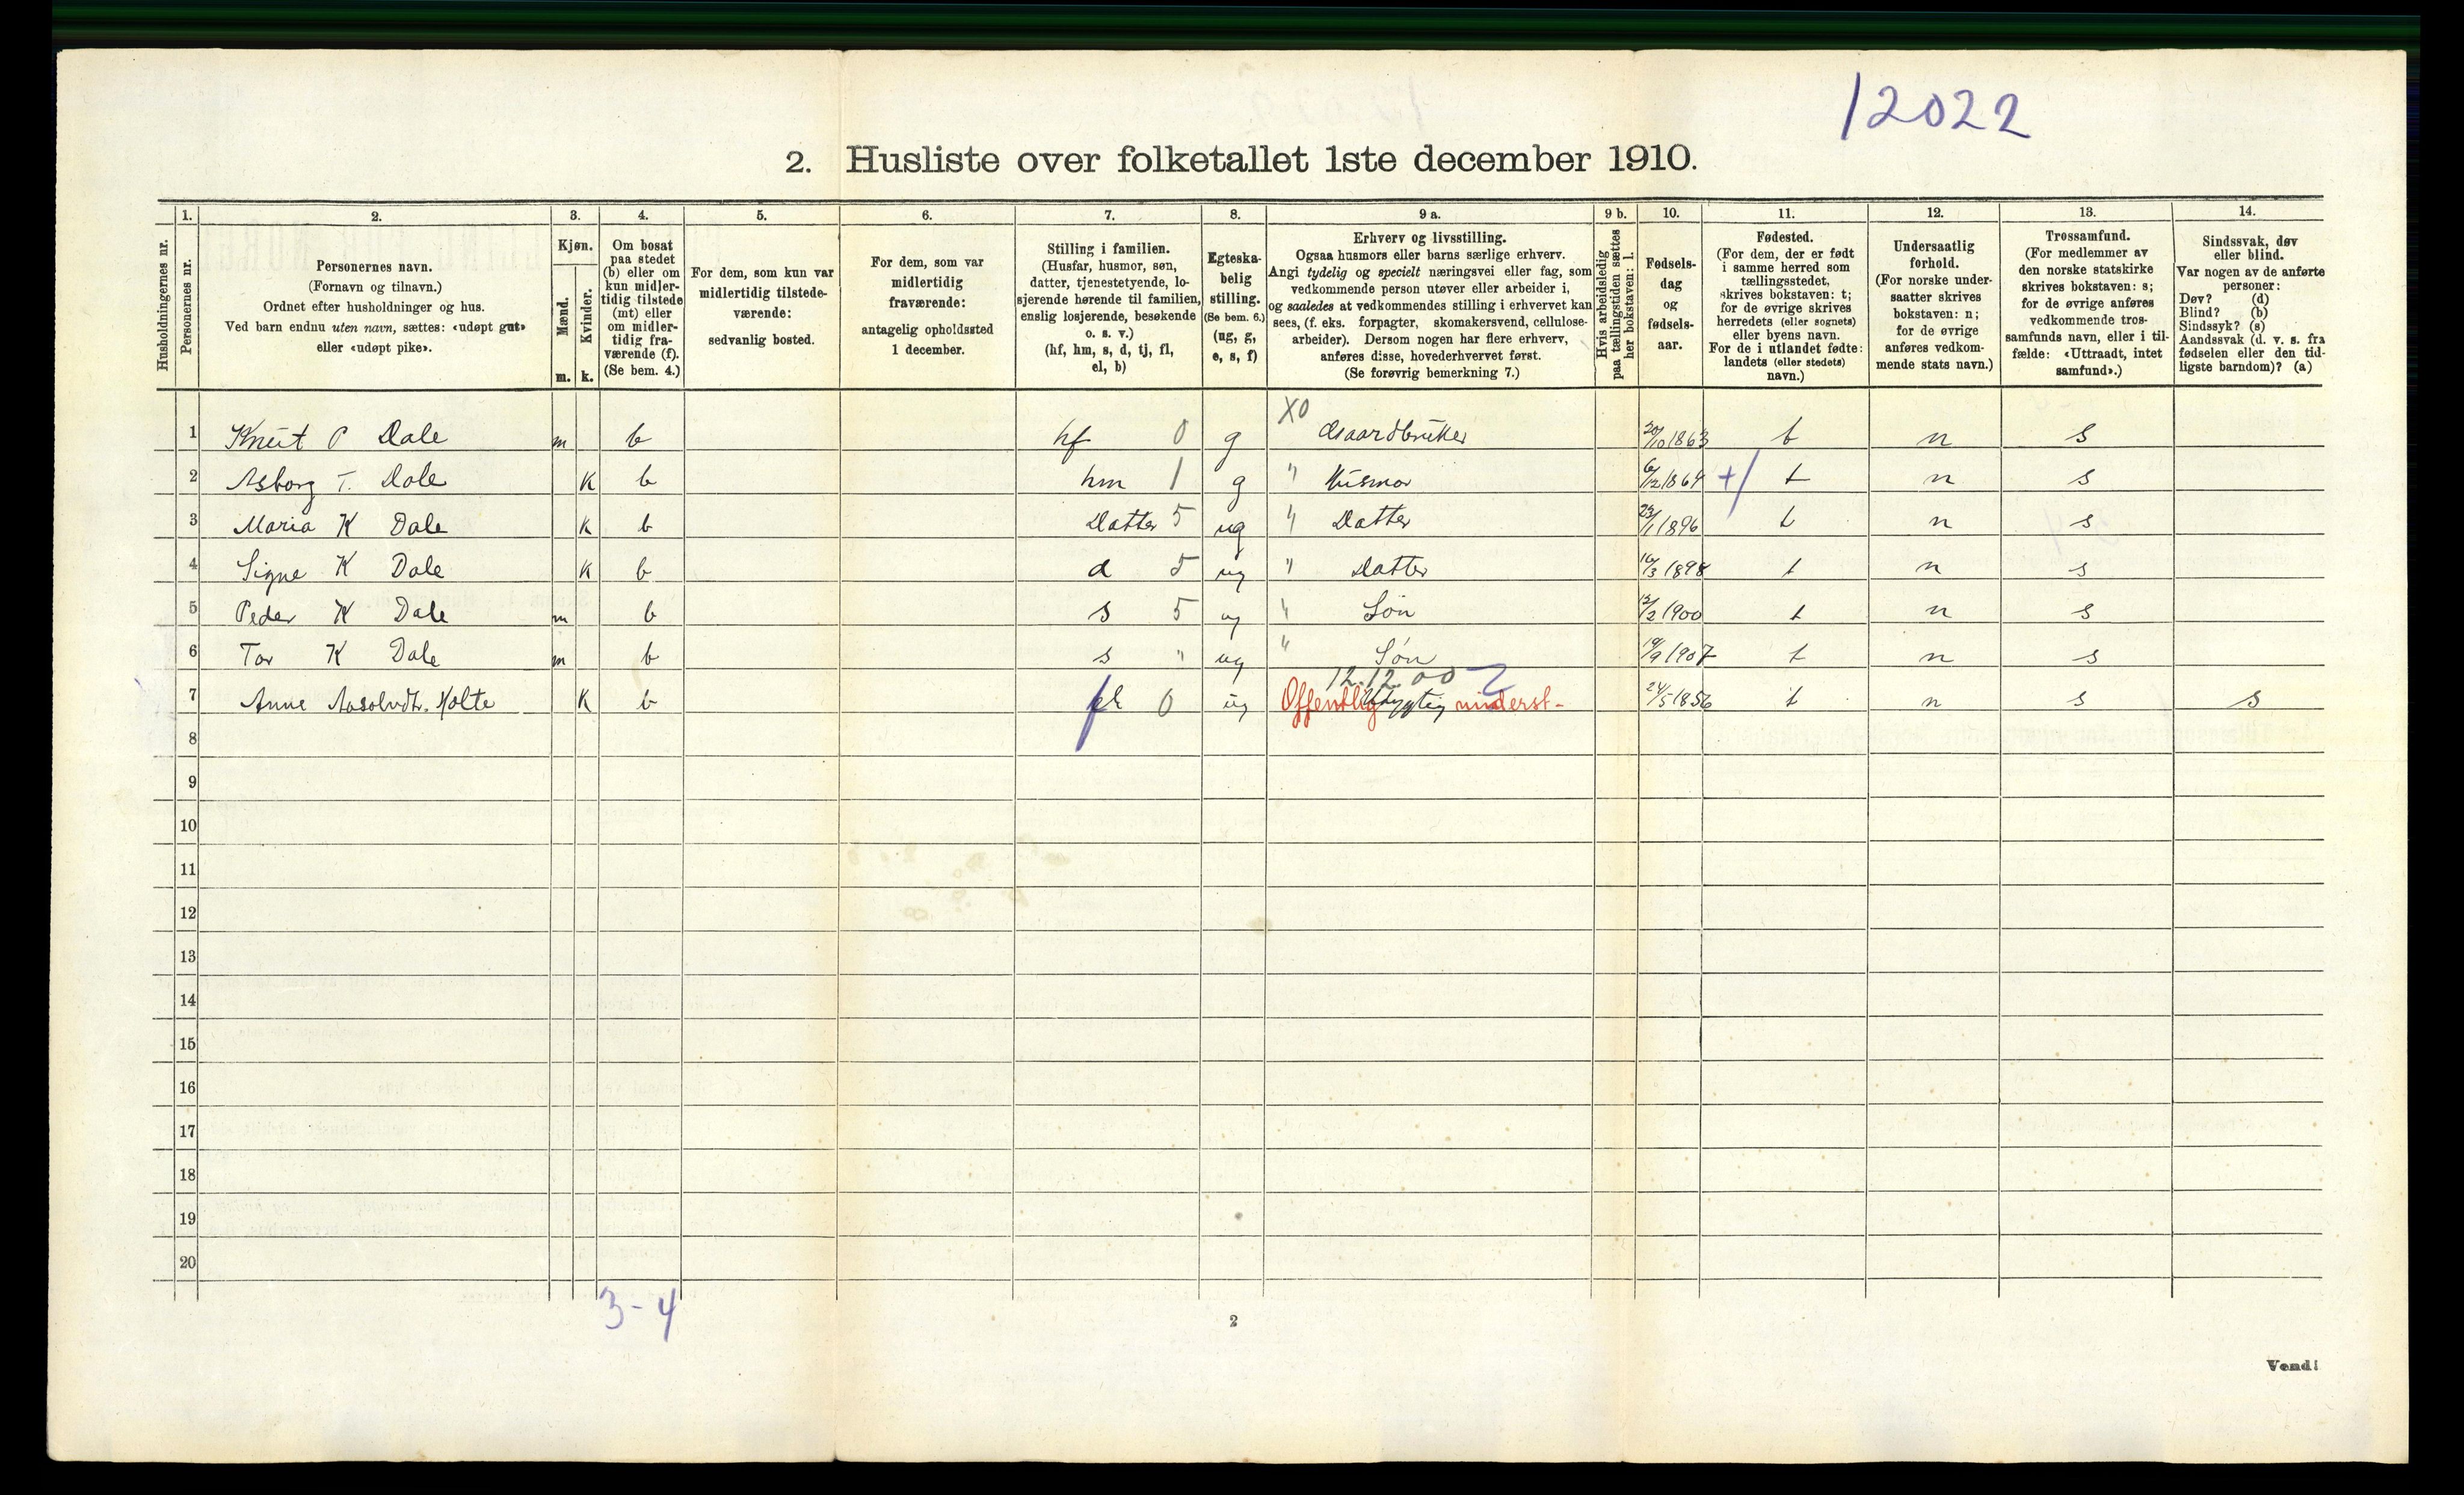 12022
2. Husliste over folketallet 1ste december 1910.
Husholdningernes nr.
1. Personernes nr.
2. Personernes navn. (Fornavn og tilnavn.) Ordnet efter husholdninger og hus. Ved barn endnu uten navn, sættes: «udøpt gut» eller «udøpt pike».
3. Kjøn. Mænd. m. Kvinder. k.
4. Om bosat paa stedet (b) eller om kun midlertidig tilstede (mt) eller om midlertidig fraværende (f). (Se bem. 4.)
5. For dem, som kun var midlertidig tilstedeværende: sedvanlig bosted.
6. For dem, som var midlertidig fraværende: antagelig opholdssted 1 december.
7. Stilling i familien. (Husfar, husmor, søn, datter, tjenestetyende, losjerende hørende til familien, enslig losjerende, besøkende o. s. v.) (hf, hm, s, d, tj, fl, el, b)
8. Egteskabelig stilling. (Se bem. 6.) (ug, g, e, s, f)
9 a. Erhverv og livsstilling. Ogsaa husmors eller barns særlige erhverv. Angi tydelig og specielt næringsvei eller fag, som vedkommende person utøver eller arbeider i, og saaledes at vedkommendes stilling i erhvervet kan sees, (f. eks. forpagter, skomakersvend, cellulosearbeider). Dersom nogen har flere erhverv, anføres disse, hovederhvervet først. (Se forøvrig bemerkning 7.)
9 b. Hvis arbeidsledig paa tællingstiden sættes her bokstaven: l.
10. Fødselsdag og fødselsaar.
11. Fødested. (For dem, der er født i samme herred som tællingsstedet, skrives bokstaven: t; for de øvrige skrives herredets (eller sognets) eller byens navn. For de i utlandet fødte: landets (eller stedets) navn.)
12. Undersaatlig forhold. (For norske undersaatter skrives bokstaven: n; for de øvrige anføres vedkommende stats navn.)
13. Trossamfund. (For medlemmer av den norske statskirke skrives bokstaven: s; for de øvrige anføres vedkommende trossamfunds navn, eller i tilfælde: «Uttraadt, intet samfund».)
14. Sindssvak, døv eller blind. Var nogen av de anførte personer: Døv? (d) Blind? (b) Sindssyk? (s) Aandssvak (d. v. s. fra fødselen eller den tidligste barndom)? (a)
1 Knut P Dale m b hf 0 g X0 Gaardbruker 20/10 1863 t n s
2 Asborg T. Dale K b hm 1 g " Husmor 6/12 1864 +/ t n s
3 Maria K Dale K b Datter 5 ug " Datter 23/1 1896 t n s
4 Signe K Dale K b d 5 ug " Datter 16/3 1898 t n s
5 Peder K Dale m b s 5 ug " Søn 12/2 1900 t n s
6 Tor K Dale m b s " ug " Søn 19/9 1907 t n s
12.12.00
7 Anne Aasolvdt. Holte K b 0 ug Offentlig underst- 24/5 1856 t n s s
8
9
10
11
12
13
14
15
16
17
18
19
20
3-4
2
Vend!